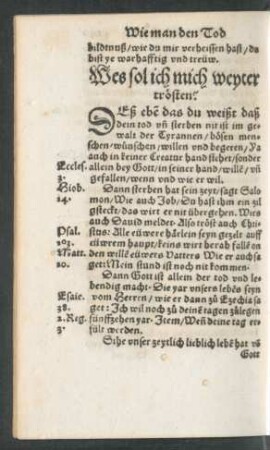 Wie man den Tod
bildtnuß/wie du mir verheissen hast/du
bist ye warhafftig vnd treüw.
Wes sol ich mich weyter
trösten?
DEß ebē das du weißt daß
dein tod vñ sterben nit ist im ge-
walt der Tyrannen/bösen men-
schen/wünschen/willen vnd begeren/Ja
auch in keiner Creatur hand stehet/sonder
Eccles. allein bey Gott/in seiner hand/willē/vñ
3. gefallen/wenn vnd wie er wil.
Hiob. Dann sterben hat sein zeyt/sagt Salo
14. mon/Wie auch Job/Du hast ihm ein zil
gsteckt/das wirt er nit übergehen. Wies
auch Dauid meldet. Also tröst auch Chri-
Psal. stus: Alle eüwere härlein seyn gezelt auff
103. eüwrem haupt/keins wirt herab fallē on
Matt. den willē eüwers Vatters Wie er auch sa
10. get: Mein stund ist noch nit kommen.
Dann Gott ist allein der tod vnd le-
bendig macht. Die yar vnsers lebēs seyn
Esaie. vom Herren/wie er dann zů Ezechia sa
38. get: Ich wil noch zů deinē tagen zůlegen
2. Reg. fünffzehen yar. Item/Weñ deine tag er-
3. fült werden.
Sihe vnser zeytlich lieblich lebē hat vñ
Gott